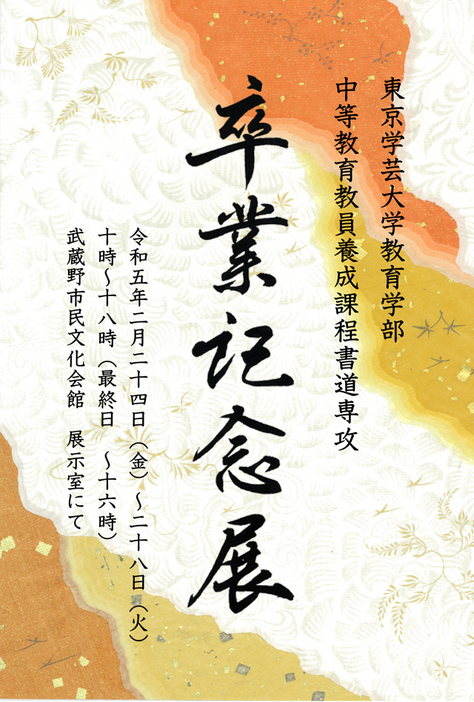 東京学芸大学教育学部
中等教育教員養成課程書道専攻
卒業記念展
令和五年二月二十四日（金）～二十八日（火）
十時～十八時（最終日　～十六時）
武蔵野市民文化会館　展示室にて